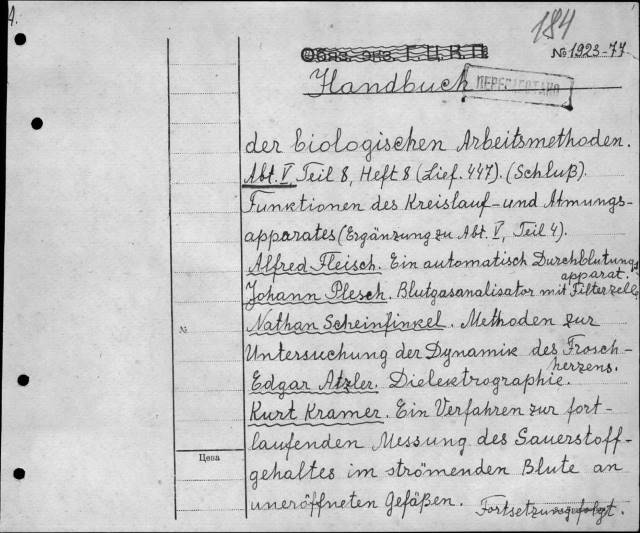 A.
184
Обяз. экз. Г.Ц.К.П.
№1923-77
Handbuch
der biologischen Arbeitsmethoden.
Abt. V, Teil 8, Heft 8 (Lief. 447). (Schluß).
Funktionen des Kreislauf- und Atmungs-
apparates (Ergänzung zu Abt. V, Teil 4).
Alfred Fleisch. Ein automatisch Durchblutungs
apparat.
Johann Plesch. Blutgasanalisator mit Filterzelle
Nathan Scheinfinkel. Methoden zur
№
Untersuchung der Dynamik des Frosch-
herzens.
Edgar Atzler. Dielektrographie.
Kurt Kramer. Ein Verfahren zur fort-
laufenden Messung des Sauerstoff-
Цена
gehaltes im strömenden Blute an
uneröffneten Gefäßen. Fortsetzung folgt.